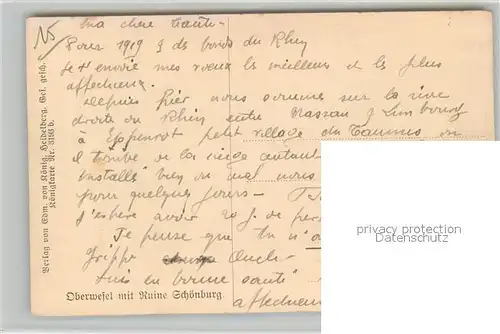 Ma chère tante -
Pour 1919 & des bords du Rhin
je t'envoie mes vœux les meilleurs et les plus
affectueux.
Depuis hier nous sommes sur la rive
droite du Rhin entre Nassau & Limbourg
à Eppenrot petit village du Taunus où
il tombe de la neige autant
installés bien ou mal nous
pour quelques jours -
J'espère avoir 20 j. de per
Je pense que tu n'a
grippe
suis en bonne santé
affectueu
Verlag von Edm. von König, Heidelberg. Ges. gesch.
Königkarte Nr. 8193 b.
Oberwesel mit Ruine Schönburg
privacy protection
Datenschutz